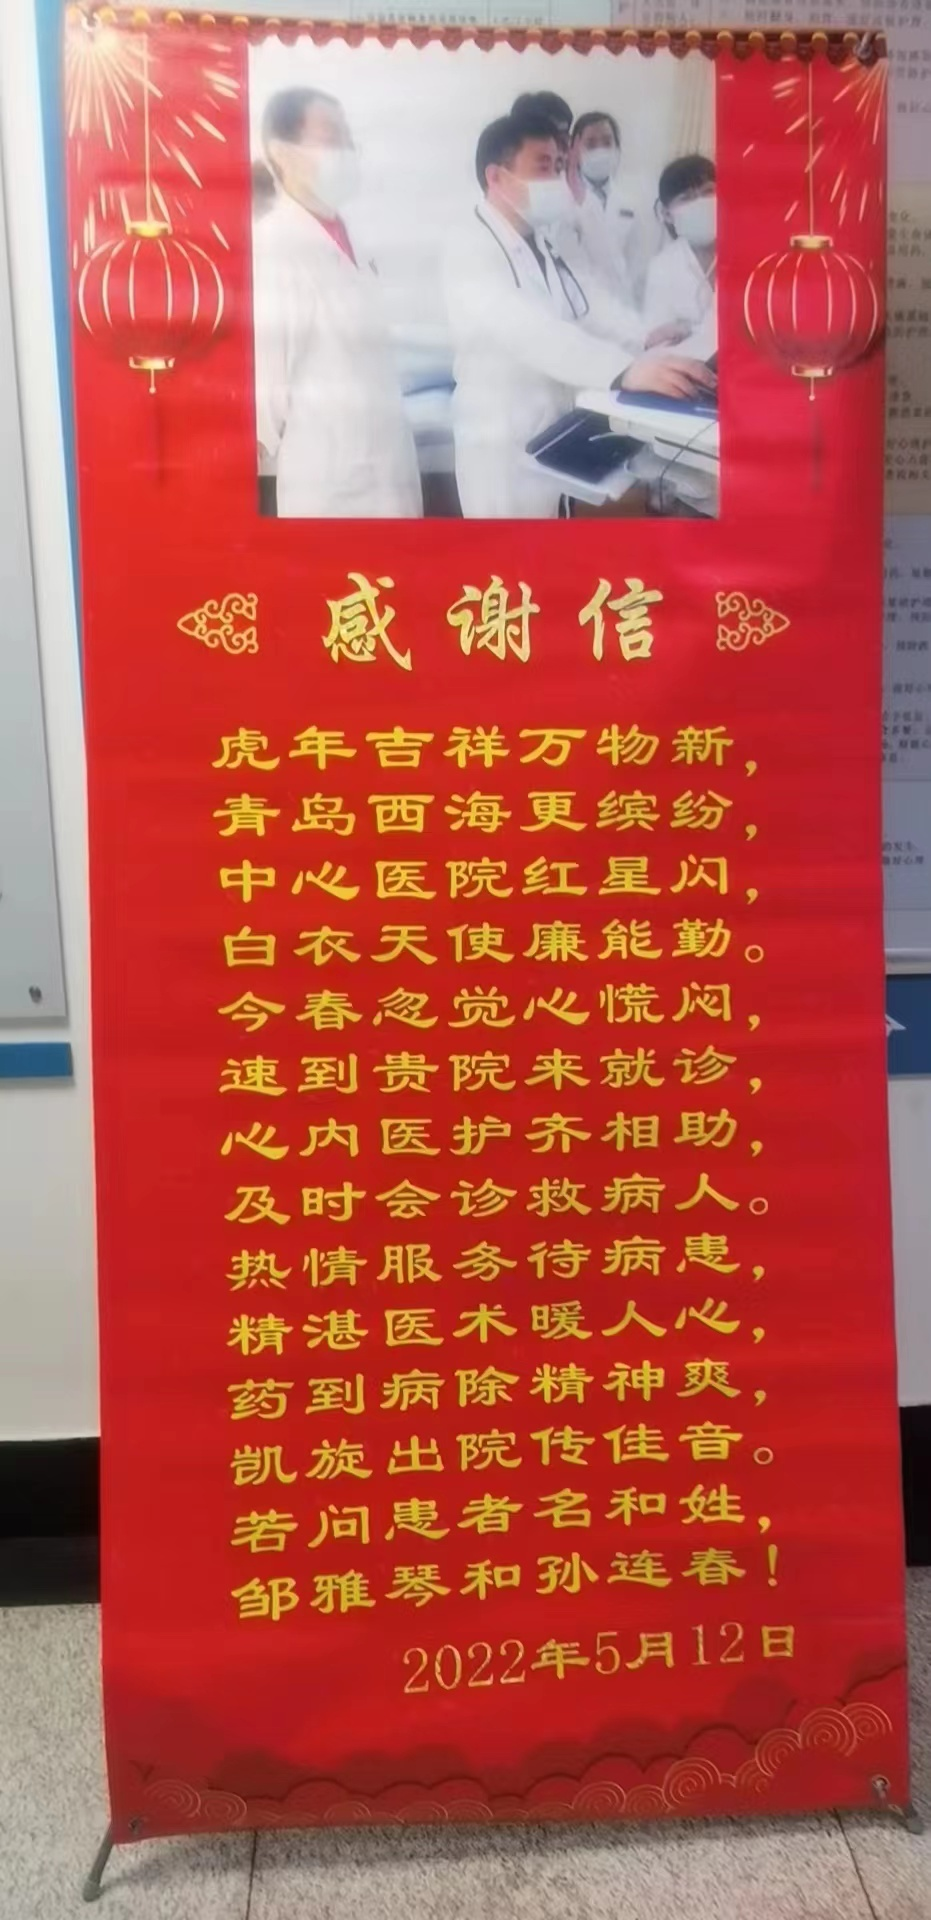 感谢信
虎年吉祥万物新，
青岛西海更缤纷，
中心医院红星闪，
白衣天使廉能勤。
今春忽觉心慌闷，
速到贵院来就诊，
心内医护齐相助，
及时会诊救病人。
热情服务待病患，
精湛医术暖人心，
药到病除精神爽，
凯旋出院传佳音。
若问患者名和姓，
邹雅琴和孙连春！
2022年5月12日